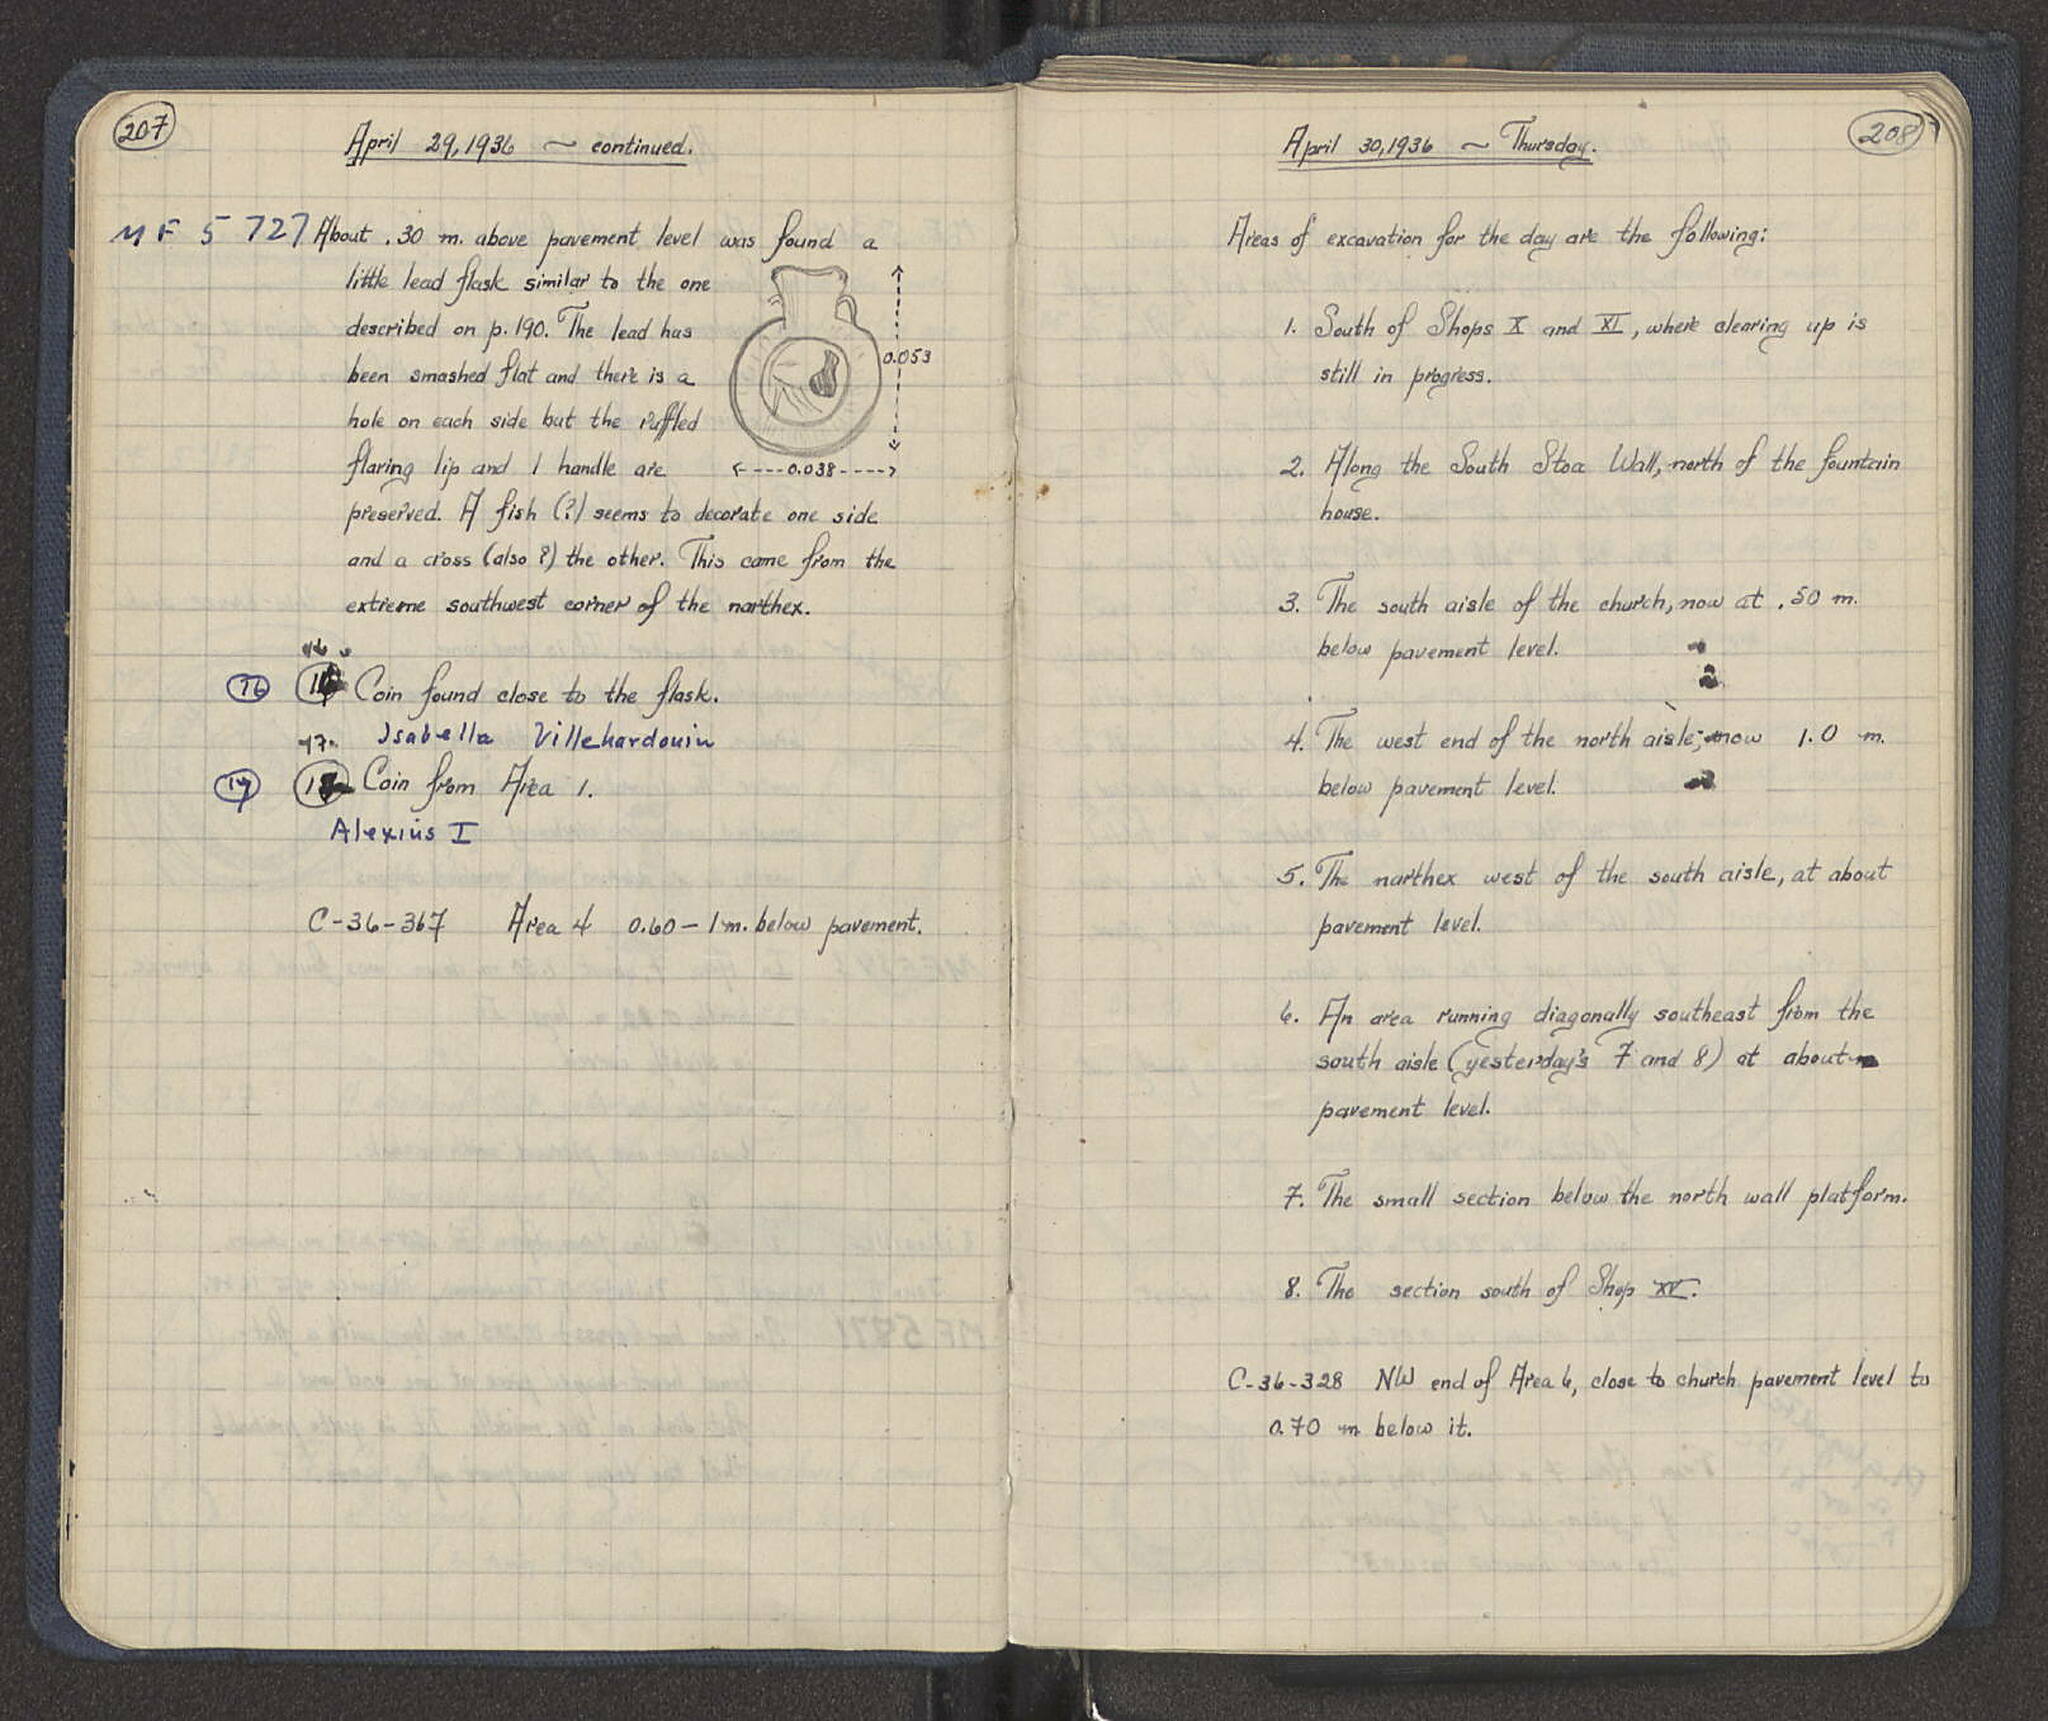 207
April 29, 1936 ~ continued.
MF 5727 About .30 m. above pavement level was found a
little lead flask similar to the one
described on p. 190. The lead has
been smashed flat and there is a
hole on each side but the ruffled
flaring lip and 1 handle are
preserved. A fish (?) seems to decorate one side
and a cross (also ?) the other. This came from the
extreme southwest corner of the narthex.
0.053
0.038
16
16 Coin found close to the flask.
17 Isabella Villehardouin
17 Coin from Area 1.
Alexius I
C-36-367 Area 4 0.60 – 1 m. below pavement.
208
April 30, 1936 ~ Thursday.
Areas of excavation for the day are the following:
1. South of Shops X and XI, where clearing up is
still in progress.
2. Along the South Stoa Wall, north of the fountain
house.
3. The south aisle of the church, now at .50 m.
below pavement level.
4. The west end of the north aisle; now 1.0 m.
below pavement level.
5. The narthex west of the south aisle, at about
pavement level.
6. An area running diagonally southeast from the
south aisle (yesterday's 7 and 8) at about
pavement level.
7. The small section below the north wall platform.
8. The section south of Shop XV.
C-36-328 NW end of Area 6, close to church pavement level to
0.70 m below it.